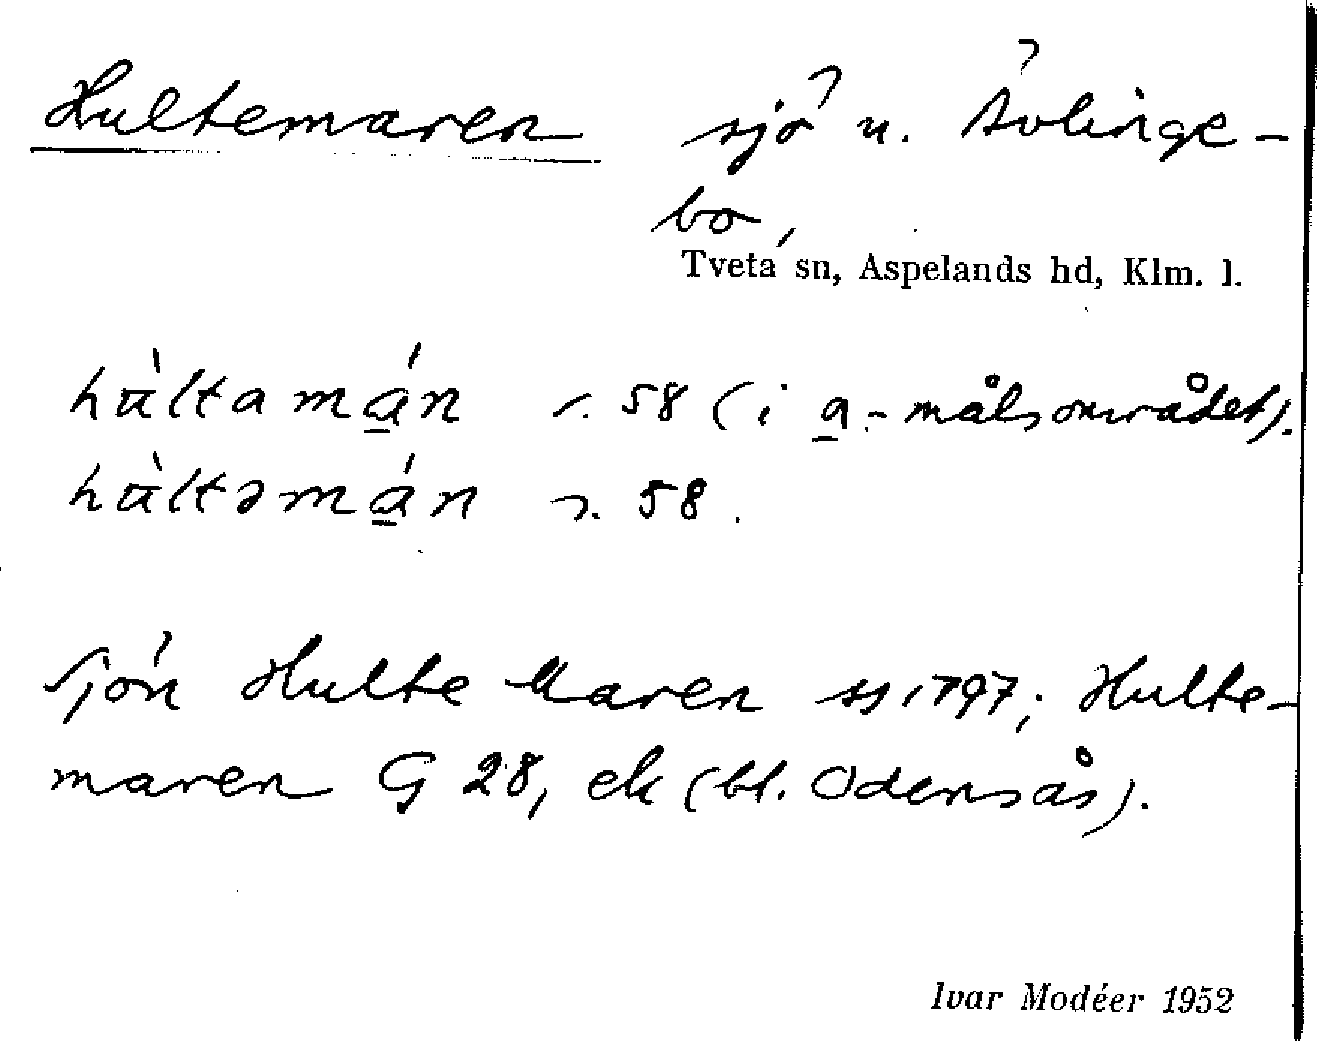 Hultemaren sjö n. Avlinge-
bo,
Tveta sn, Aspelands hd, Klm. l.
hùltamán s. 58 (i a-målsområdet).
hùltəmán s. 58.
Sjön Hulte Maren ss 1797; Hulte-
maren G 28, ek (bl. Odensås).
Ivar Modéer 1952